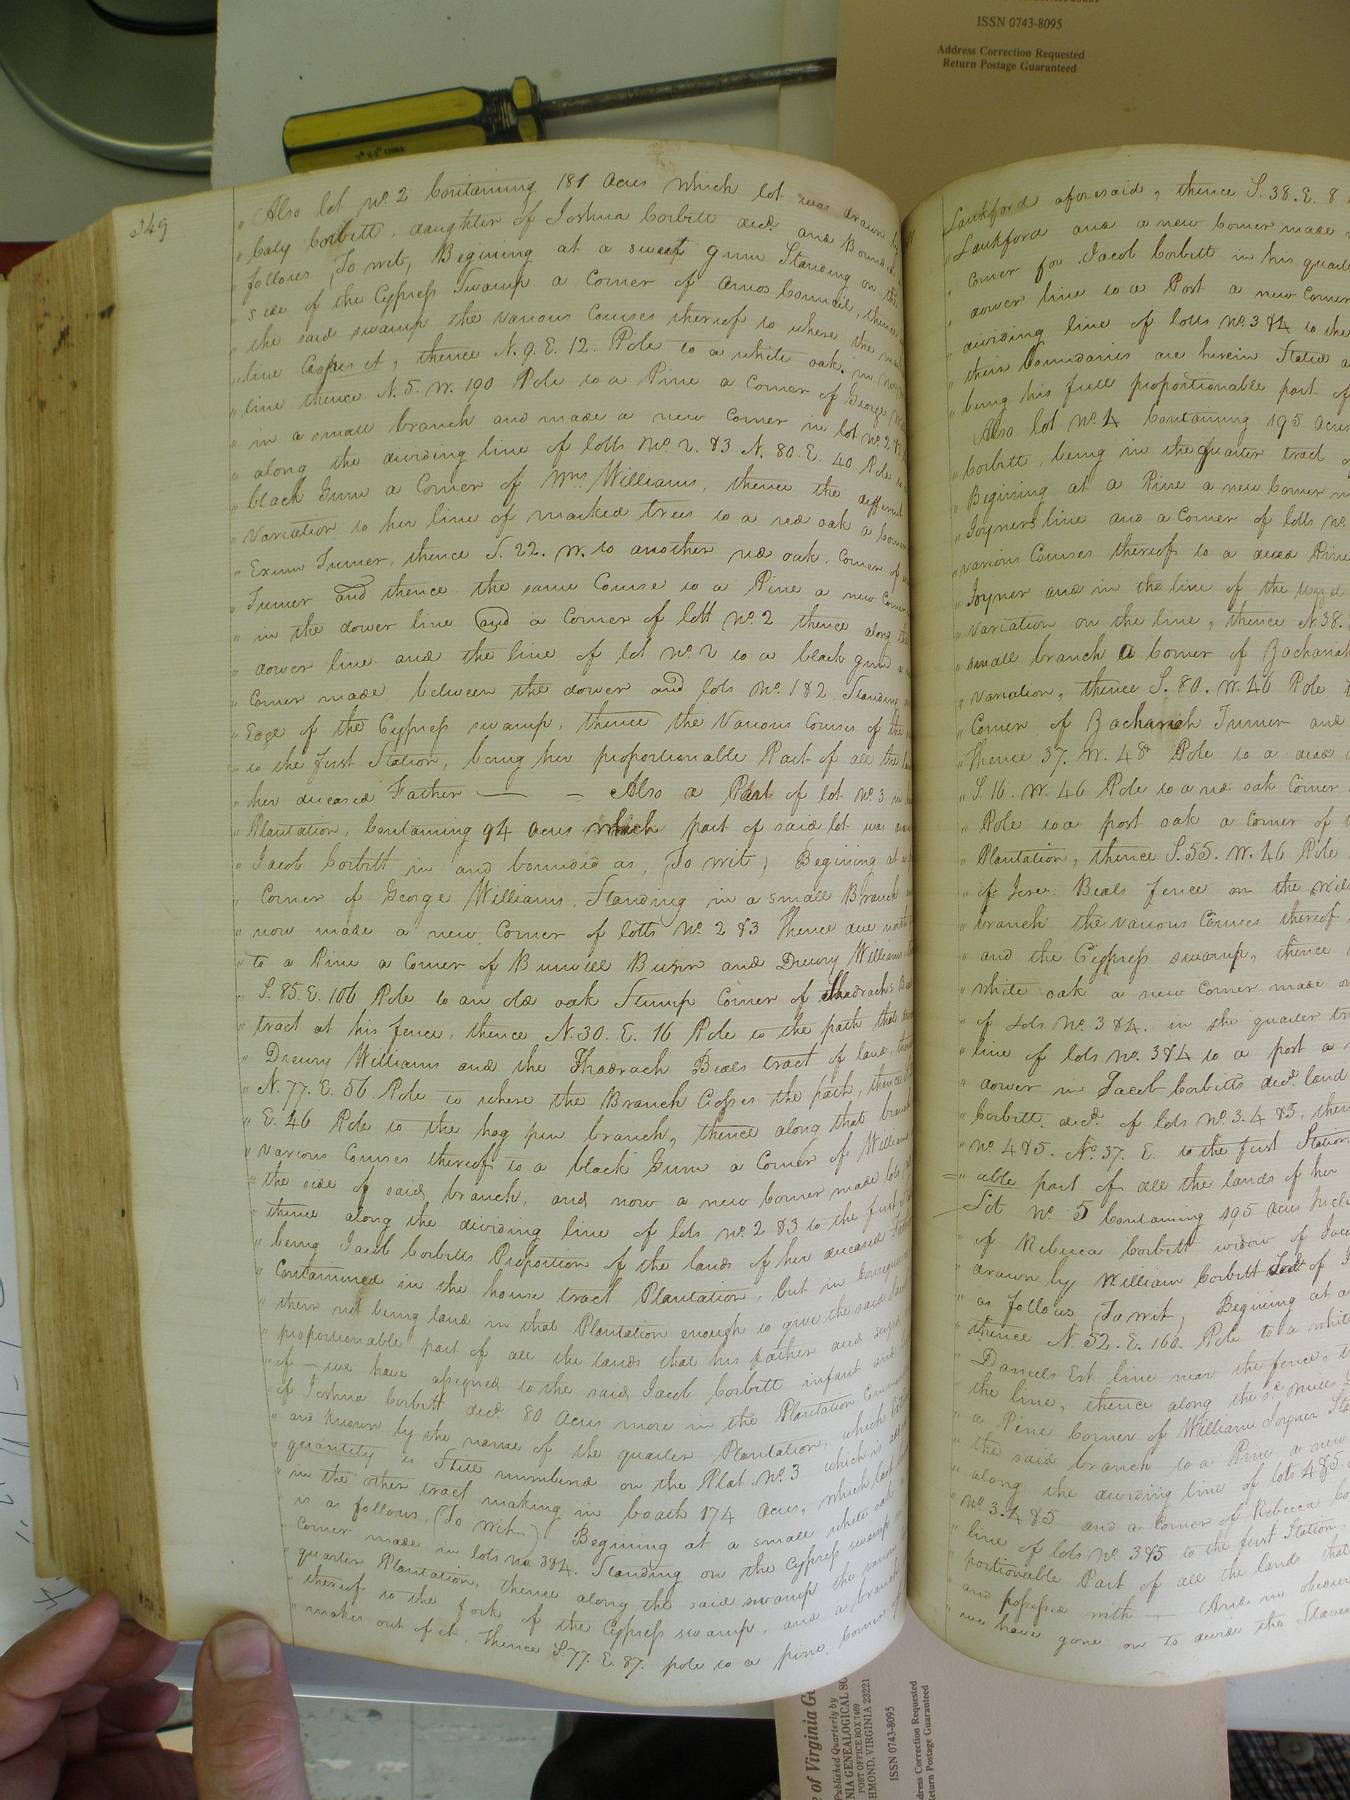 ISSN 0743-8095
Address Correction Requested
Return Postage Guaranteed
349
Also lot No. 2 Containing 181 Acres which lot was drawn by
Caty Corbitt, daughter of Joshua Corbitt decd. and Bounded
follows, To wit, Begining at a sweet gum Standing on the
side of the Cypress Swamp a Corner of Amos Council, thence
the said swamp the various Courses thereof to where the
line Crosses it, thence N. 9. E. 12. Pole to a white oak in
line thence N. 5. W. 190 Pole to a Pine a Corner of George
in a small branch and made a new Corner in lot No. 2 &3
along the dividing line of lotts No. 2. &3 N. 80. E. 40 Pole to
black Gum a Corner of Wms Williams, thence the different
Variation to her line of marked trees to a red oak a Corner
Exum Turner, thence S. 22. W. to another red oak, Corner of
Turner and thence the same Course to a Pine a new Corner
in the dower line and a Corner of lott No. 2 thence along the
dower line and the line of lot No. 2 to a black gum
Corner made between the dower and lots No. 1 &2 Standing
Edge of the Cypress swamp, thence the Various Courses of the
to the first Station, being her proportionable Part of all the
her deceased Father — — Also a Part of lot No. 3
Plantation, Containing 94 acres which part of said lot was
Jacob Corbitt in and bounded as, (To wit,) Begining at
Corner of George Williams, Standing in a small Branch
now made a new Corner of lotts No. 2 &3 Thence due north
to a Pine a Corner of Burwell Bunn and Drewry Williams
S. 85. E. 106 Pole to an old oak Stump Corner of Shadrachs
tract at his fence, thence N. 30. E. 16 Pole to the path that
Drewry Williams and the Shadrach Beals tract of land,
N. 77. E. 56 Pole to where the Branch Crosses the path, thence
E. 46 Pole to the hog pen branch, thence along that branch
various Courses thereof to a black Gum a Corner of William
the side of said branch, and now a new Corner made
thence along the dividing line of lots No. 2 &3 to the first
being Jacob Corbitts Proportion of the lands of her deceased Father
Contained in the house tract Plantation, but in Consequence
their not being land in that Plantation enough to give the said
proportionable part of all the lands that his father died
of — we have assigned to the said Jacob Corbitt infant
of Joshua Corbitt decd. 80 Acres more in the Plantation
are known by the name of the quarter Plantation, which
quantity is Still numbered on the Plat No. 3 which is
in the other tract making in boath 174 Acres, which last
is as follows, (To wit) Begining at a small white oak
Corner made in lots No. 3&4. Standing on the Cypress swamp
quarter Plantation, thence along the said swamp the various
thereof to the fork of the Cypress swamp, and a branch
makes out of it, thence S. 77. E. 87. pole to a pine, Corner
Lankford aforesaid, thence S. 38. E. 8
Lankford and a new Corner made
Corner for Jacob Corbitt in his quarter
dower line to a Post a new Corner
dividing line of lotts No. 3 &4 to the
their boundaries are herein Stated
being his full proportionable part of
Also lot No. 4 Containing 195 Acres
Corbitt, being in the quarter tract
Begining at a Pine a new Corner
Joyners line and a Corner of lotts No.
various Courses thereof to a dead Pine
Joyner and in the line of the
variation on the line, thence N. 38.
small branch a Corner of Zachariah
variation, thence S. 80. W. 46 Pole
Corner of Zachariah Turner and
Thence 37. W. 48 Pole to a dead
S. 16. W. 46 Pole to a red oak Corner
Pole to a post oak a Corner of
Plantation, thence S. 55. W. 46 Pole
of Beals fence on the
branch the various Courses thereof
and the Cypress swamp, thence
white oak a new Corner made
of lots No. 3 &4. in the quarter
line of lots No. 3&4 to a post a
dower in Jacob Corbitts decd. land
Corbitt. decd. of lots No. 3. 4 &5, thence
No. 4 &5. N. 37. E. to the first Station
able part of all the lands of her
Lot No. 5 Containing 195 Acres
of Rebecca Corbitt widow of
drawn by William Corbitt of
as follows, To wit, Begining at
thence N. 52. E. 160. Pole to a white
Daniels Est. line near the fence,
the line, thence along the sd.
a Pine Corner of William Joyner
the said branch to a Pine a new
along the dividing line of lots 4&5.
No. 3. 4 &5 and a Corner of Rebecca
line of lots No. 3&5 to the first Station,
portionable Part of all the lands that
and possessed with — And in
we have gone on to divide the Slaves
of Virginia
Published Quarterly by
NIA GENEALOGICAL SO
POST OFFICE BOX 7469
HMOND, VIRGINIA 23221
ISSN 0743-8095
dress Correction Requested
eturn Postage Guaranteed